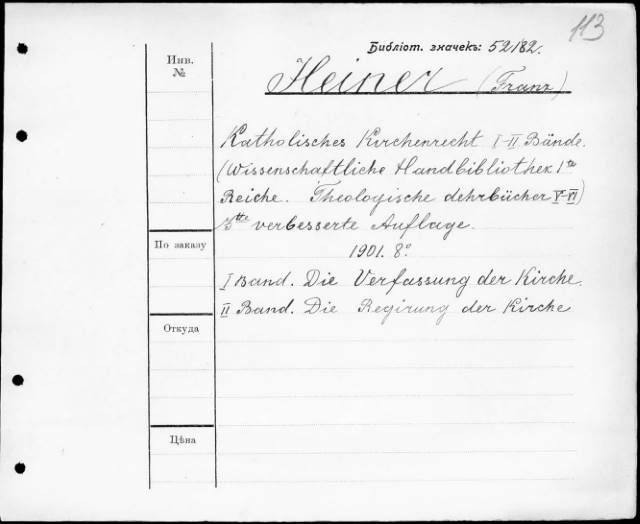 113
Библіот. значекъ: 52182.
Инв.
№
Heiner (Franz)
Katholisches Kirchenrecht I-II Bände.
(Wissenschaftliche Handbibliothek 1te
Reiche. Theologische Lehrbücher V-VI)
3tte verbesserte Auflage.
1901. 8°
По заказу
I Band. Die Verfassung der Kirche.
II Band. Die Regirung der Kirche
Откуда
Цѣна